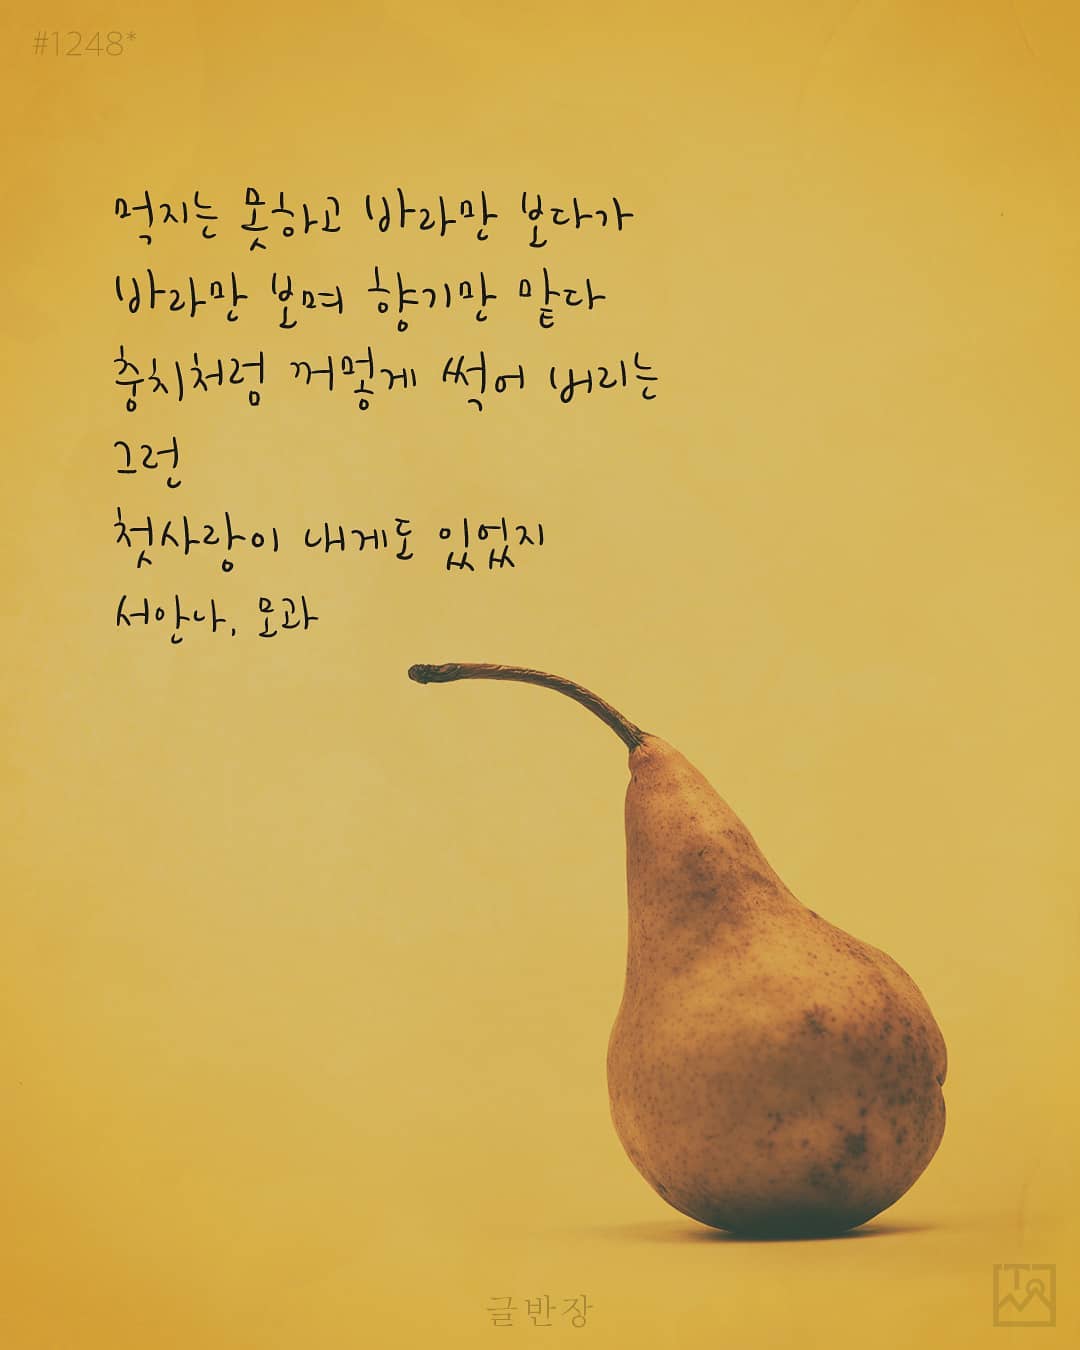 #1248*
먹지는 못하고 바라만 보다가
바라만 보며 향기만 맡다
충치처럼 꺼멓게 썩어 버리는
그런
첫사랑이 내게도 있었지
서안나, 모과
글반장